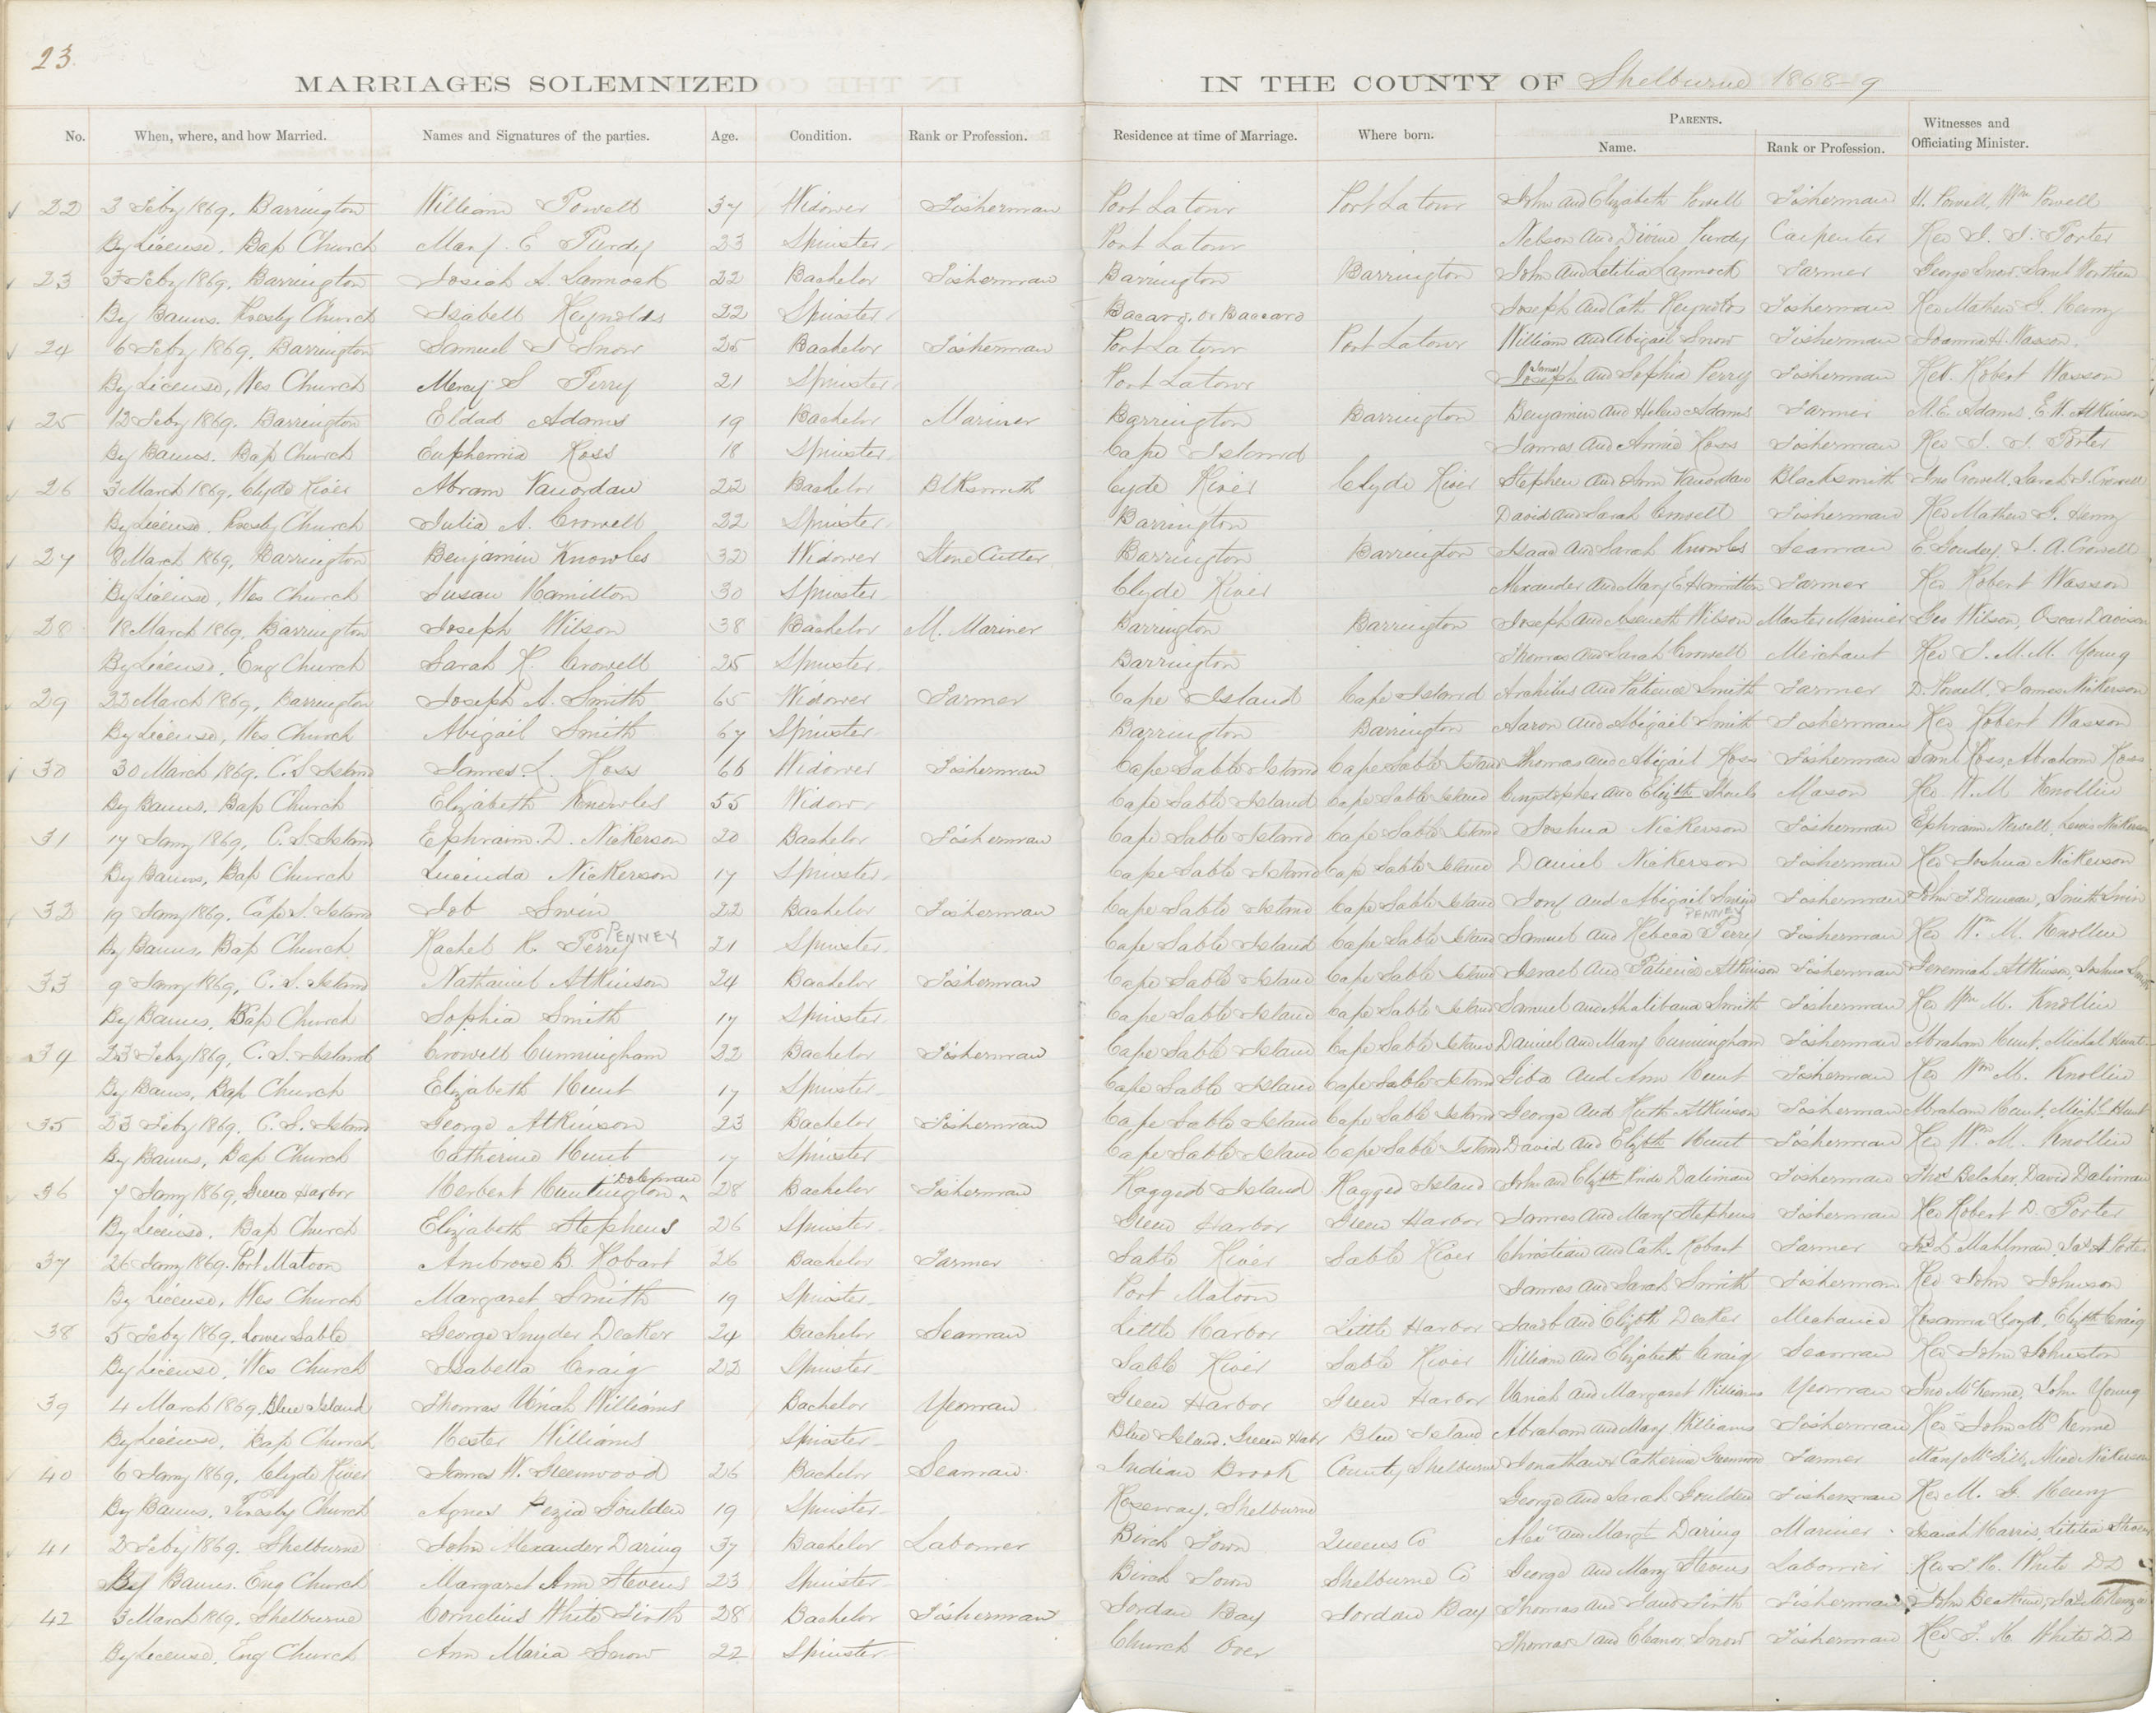 23.
MARRIAGES SOLEMNIZED IN THE COUNTY OF Shelburne 1868-9
No. When, where, and how Married. Names and Signatures of the parties. Age. Condition. Rank or Profession. Residence at time of Marriage. Where born. PARENTS. Name. Rank or Profession. Witnesses and Officiating Minister.
22 3 Feby 1869, Barrington William Powell 37 Widower Fisherman Port Latour Port Latour John and Elizabeth Powell Fisherman H. Powell, Wm Powell
By License, Bap Church Mary E Purdy 23 Spinster Port Latour Nelson and Purdy Carpenter Rev Porter
23 3 Feby 1869, Barrington Josiah S. Lamrock 22 Bachelor Fisherman Barrington Barrington John and Letitia Lamrock Farmer George Snow, Saml
By Banns, Presby Church Isabell Reynolds 22 Spinster Baccaro Joseph and Cath Reynolds Fisherman Rev Mathew G. Henry
24 6 Feby 1869, Barrington Samuel S Snow 25 Bachelor Fisherman Port Latour Port Latour William and Abigail Snow Fisherman Joanna H. Wasson
By License, Wes Church Mercy S Perry 21 Spinster Port Latour James Joseph and Sophia Perry Fisherman Rev. Robert Wasson
25 12 Feby 1869, Barrington Eldad Adams 19 Bachelor Mariner Barrington Barrington Benjamin and Helen Adams Farmer M. E. Adams, E. W. Atkinson
By Banns, Bap Church Euphemia Ross 18 Spinster Cape Island James and Annie Ross Fisherman Rev Porter
26 3 March 1869, Clyde River Abram Vanordan 22 Bachelor Blksmith Cyde River Clyde River Stephen and Ann Vanordan Blacksmith Jno Crowell, Sarah J. Crowell
By License, Presby Church Julia A. Crowell 22 Spinster Barrington David and Sarah Crowell Fisherman Rev Mathew G. Henry
27 8 March 1869, Barrington Benjamin Knowles 32 Widower Stone Cutter Barrington Barrington Isaac and Sarah Knowles Seaman E. Goudey, A. Crowell
By License, Wes Church Susan Hamilton 30 Spinster Clyde River Alexander and Mary E Hamilton Farmer Rev Robert Wasson
28 18 March 1869, Barrington Joseph Wilson 38 Bachelor M. Mariner Barrington Barrington Joseph and Aseneth Wilson Master Mariner Geo Wilson, Oscar Davison
By License, Eng Church Sarah H. Crowell 25 Spinster Barrington Thomas and Sarah Crowell Merchant Rev M. M. Young
29 22 March 1869, Barrington Joseph A. Smith 65 Widower Farmer Cape Island Cape Island Archilus and Patience Smith Farmer D. Powell, James Nickerson
By License, Wes Church Abigail Smith 67 Spinster Barrington Barrington Aaron and Abigail Smith Fisherman Rev Robert Wasson
30 30 March 1869, C. S Island James L. Ross 66 Widower Fisherman Cape Sable Island Cape Sable Island Thomas and Abigail Ross Fisherman Saml Ross, Abraham Ross
By Banns, Bap Church Elizabeth Knowles 55 Widow Cape Sable Island Cape Sable Island and Elizth Mason Rev W. M Knollin
31 17 Jany 1869, C. S Island Ephraim D. Nickerson 20 Bachelor Fisherman Cape Sable Island Cape Sable Island Joshua Nickerson Fisherman Ephraim Newell, Lewis Nickerson
By Banns, Bap Church Lucinda Nickerson 17 Spinster Cape Sable Island Cape Sable Island Daniel Nickerson Fisherman Rev Joshua Nickerson
32 19 Jany 1869, Cape S. Island Job Swin 22 Bachelor Fisherman Cape Sable Island Cape Sable Island and Abigail Swin Fisherman John Duncan, Smith Swin
By Banns, Bap Church Rachel R. Perry PENNEY 21 Spinster Cape Sable Island Cape Sable Island Samuel and Rebecca Perry PENNEY Fisherman Rev Wm M. Knollin
33 9 Jany 1869, C. S. Island Nathaniel Atkinson 24 Bachelor Fisherman Cape Sable Island Cape Sable Island Israel and Patience Atkinson Fisherman Jeremiah Atkinson, Joshua Smith
By Banns, Bap Church Sophia Smith 17 Spinster Cape Sable Island Cape Sable Island Samuel and Smith Fisherman Rev Wm M. Knollin
34 23 Feby 1869, C. S. Island Crowell Cunningham 22 Bachelor Fisherman Cape Sable Island Cape Sable Island Daniel and Mary Cunningham Fisherman Abraham Hunt, Michal Hunt
By Banns, Bap Church Elizabeth Hunt 17 Spinster Cape Sable Island Cape Sable Island and Ann Hunt Fisherman Rev Wm M. Knollin
35 23 Feby 1869, C. S. Island George Atkinson 23 Bachelor Fisherman Cape Sable Island Cape Sable Island George and Ruth Atkinson Fisherman Abraham Hunt, Michl Hunt
By Banns, Bap Church Catherine Hunt 17 Spinster Cape Sable Island Cape Sable Island David and Elizth Hunt Fisherman Rev Wm M. Knollin
36 7 Jany 1869, Green Harbor Herbert Huntington Doleman 28 Bachelor Fisherman Ragged Island Ragged Island John and Elizth Daleman Fisherman Thos Belcher, David Daleman
By License, Bap Church Elizabeth Stephens 26 Spinster Green Harbor Green Harbor James and Mary Stephens Fisherman Rev Robert D. Porter
37 26 Jany 1869, Port Matoon Ambrose B. Hobart 26 Bachelor Farmer Sable River Sable River Christian and Cath. Hobart Farmer Mahlman, Jas A Porter
By License, Wes Church Margaret Smith 19 Spinster Port Matoon James and Sarah Smith Fisherman Rev John Johnson
38 5 Feby 1869, Lower Sable George Snyder Decker 24 Bachelor Seaman Little Harbor Little Harbor Jacob and Elizth Decker Mechanic Rosanna Lloyd, Elizth Craig
By License, Wes Church Isabella Craig 22 Spinster Sable River Sable River William and Elizabeth Craig Seaman Rev John Johnston
39 4 March 1869, Blue Island Thomas Uriah Williams Bachelor Yeoman Green Harbor Green Harbor Uriah and Margaret Williams Yeoman Jno McKenne, John Young
By License, Bap Church Hester Williams Spinster Blue Island, Green Habr Blue Island Abraham and Mary Williams Fisherman Rev John McKenne
40 6 Jany 1869, Clyde River James W. Greenwood 26 Bachelor Seaman Indian Brook County Shelburne Jonathan & Catherine Greenwood Farmer Mary McGill, Alice Nickerson
By Banns, Presby Church Agnes Kezia Goulden 19 Spinster Roseway, Shelburne George and Sarah Goulden Fisherman Rev M. G. Henry
41 2 Feby 1869, Shelburne John Alexander Daring 37 Bachelor Labourer Birch Town Queens Co Alex and Margt Daring Mariner Isaiah Harris, Letitia Stevens
By Banns, Eng Church Margaret Ann Stevens 23 Spinster Birch Town Shelburne Co George and Mary Stevens Labourer Rev White DD
42 3 March 1869, Shelburne Cornelius White Firth 28 Bachelor Fisherman Jordan Bay Jordan Bay Thomas and Firth Fisherman John McKenzie
By License, Eng Church Ann Maria Snow 22 Spinster Church Over Thomas and Eleanor Snow Fisherman Rev White DD